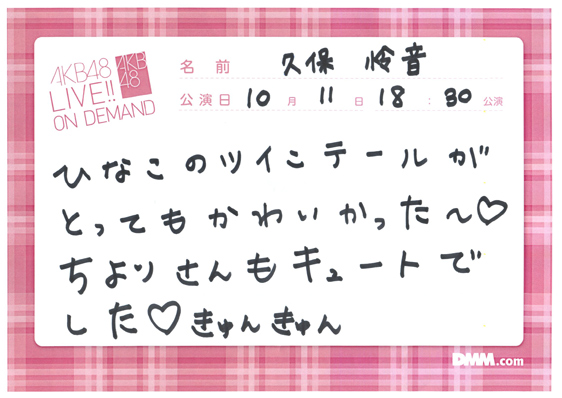 AKB48
LIVE!!
ON DEMAND
AKB
48
名前 久保 怜音
公演日 10月 11日 18:30公演
ひなこのツインテールが
とってもかわいかった〜♡
ちよりさんもキュートで
した♡きゅんきゅん
DMM.com